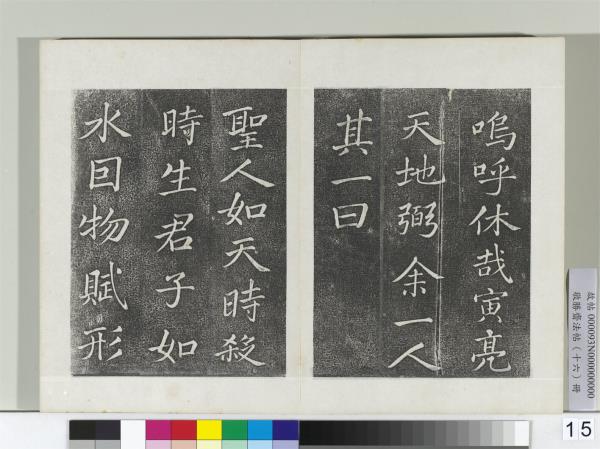 嗚呼休哉寅亮
天地弼余一人
其一曰
聖人如天時殺
時生君子如
水因物賦形
故帖 000093N000000000
敬勝齋法帖（十六）冊
15